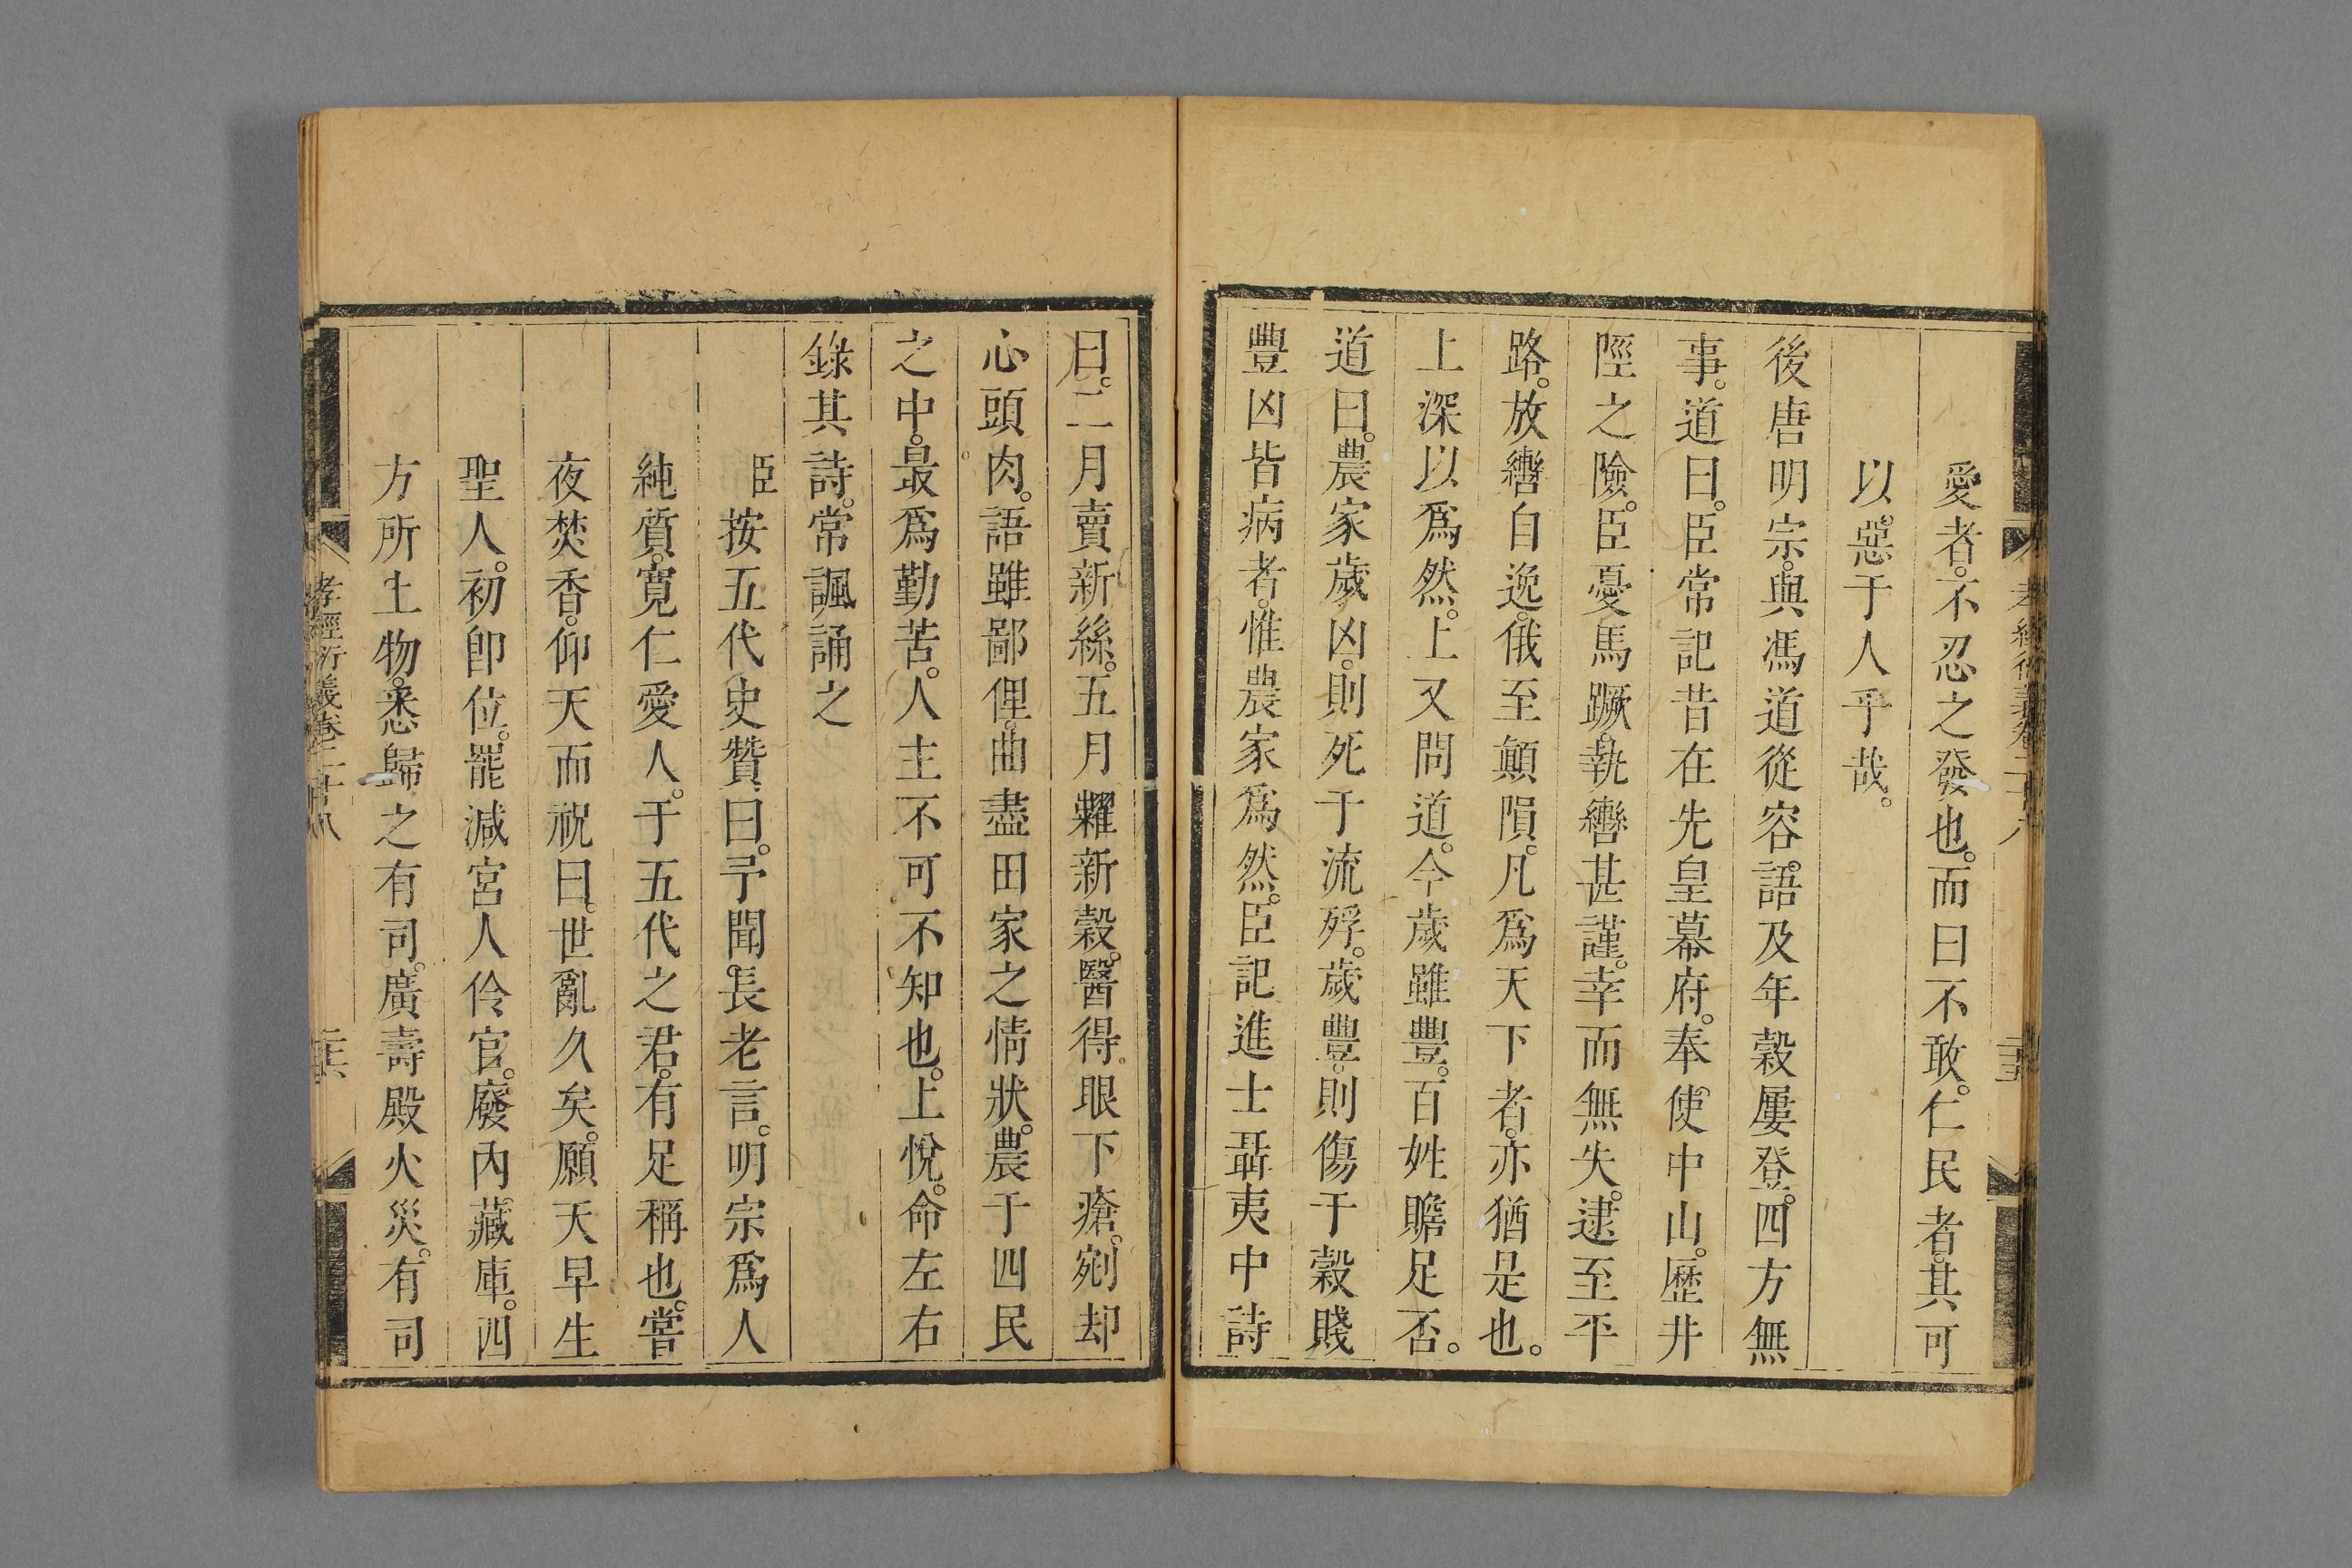 愛者。不忍之發也。而曰不敢。仁民者。其可
以。惡于人乎哉。
後唐明宗。與馮道從容。語及年穀屢登。四方無
事。道曰。臣常記昔在先皇幕府。奉使中山。歷井
陘之險。臣憂馬蹶。執轡甚謹。幸而無失。逮至平
路。放轡自逸。俄至顛隕。凡爲天下者。亦猶是也。
上深以爲然。上又問道。今歲雖豐。百姓贍足否。
道曰。農家歲凶。則死于流殍。歲豐。則傷于穀賤
豐凶皆病者。惟農家爲然。臣記進士聶夷中詩
曰。二月賣新絲。五月糶新穀。醫得。眼下瘡。剜却
心頭肉。語雖鄙俚。曲盡田家之情狀。農于四民
之中。最爲勤苦。人主不可不知也。上悅。命左右
錄其詩。常諷誦之
臣按五代史贊曰。予聞。長老言。明宗爲人
純質。寬仁愛人。于五代之君。有足稱也。嘗
夜焚香。仰天而祝曰。世亂久矣。願天早生
聖人。初卽位。罷減宮人伶官。廢內藏庫。四
方所土物。悉歸之有司。廣壽殿火災。有司
孝經衍義卷二十八